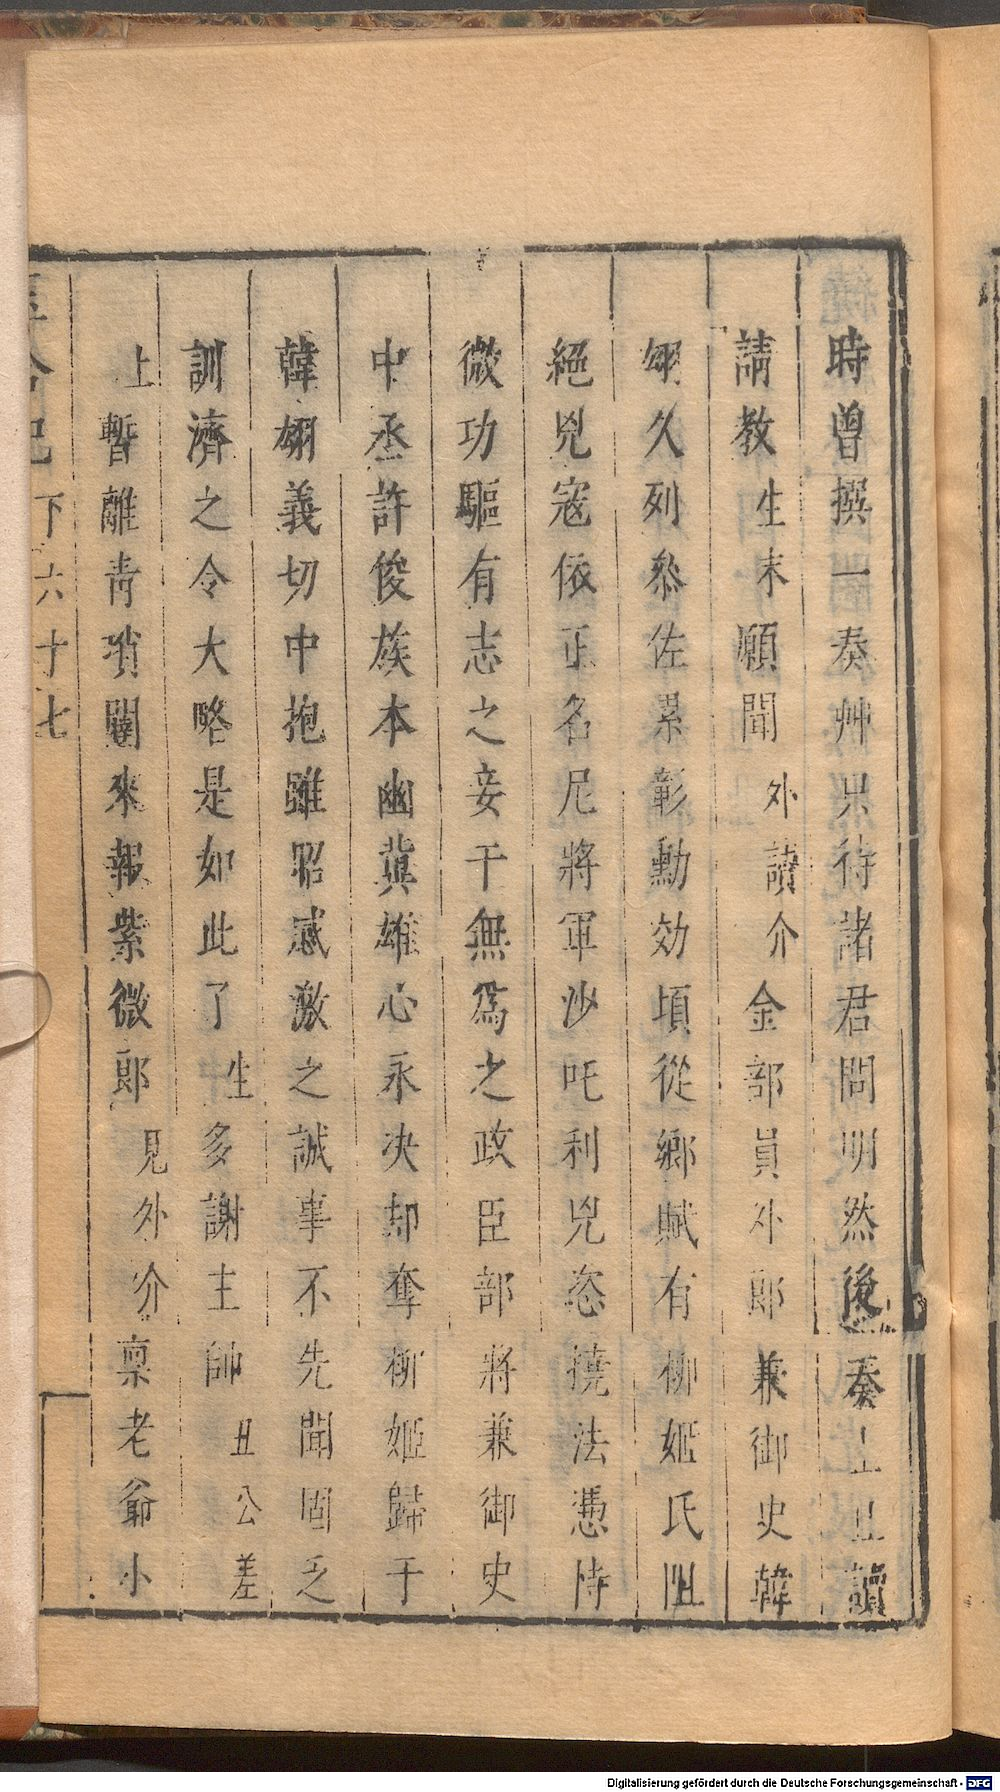 時曾撰一奏艸只待諸君問明然後奏上且讀
請教生末願聞外讀介金部員外郎兼御史韓
翃久列叅佐累彰勳効頃從鄉賦有柳姬氏阻
絕兇寇依正名尼將軍沙吒利兇恣撓法憑恃
微功驅有志之妾干無爲之政臣部將兼御史
中丞許俊族本幽冀雄心永决却奪柳姬歸于
韓翃義切中抱雖昭感激之誠事不先聞固乏
訓濟之令大略是如此了生多謝主帥丑公差
上暫離青瑣闥來報紫微郎見外介禀老爺小
玉合記 下 六十七
Digitalisierung gefördert durch die Deutsche Forschungsgemeinschaft - DFG